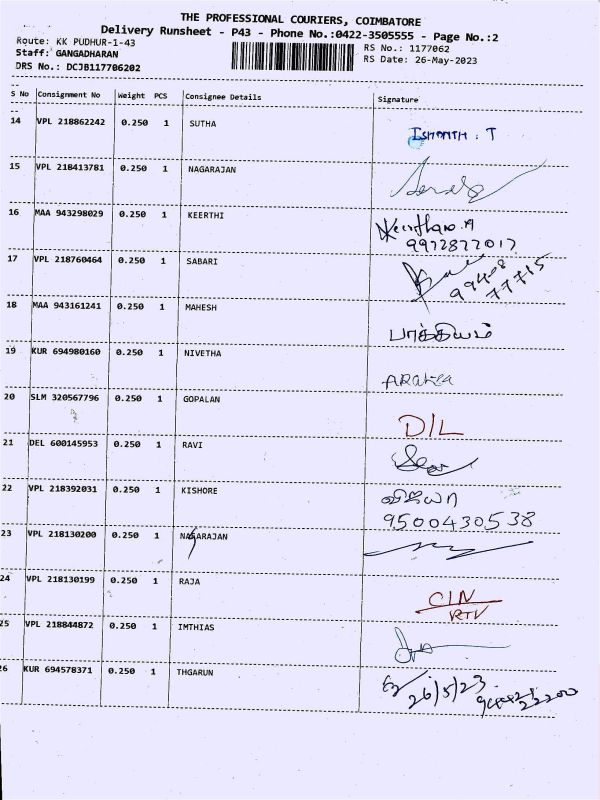 THE PROFESSIONAL COURIERS, COIMBATORE
Delivery Runsheet - P43 - Phone No.:0422-3505555 - Page No.:2
Route: KK PUDHUR-1-43
RS No.: 1177062
Staff: GANGADHARAN
RS Date: 26-May-2023
DRS No.: DCJB117706202
S No Consignment No Weight PCS Consignee Details Signature
14 VPL 218862242 0.250 1 SUTHA
15 VPL 218413781 0.250 1 NAGARAJAN
16 MAA 943298029 0.250 1 KEERTHI
9972877017
17 VPL 218760464 0.250 1 SABARI
99408
77715
18 MAA 943161241 0.250 1 MAHESH
பாக்கியம்
19 KUR 694980160 0.250 1 NIVETHA
20 SLM 320567796 0.250 1 GOPALAN
D/L
21 DEL 600145953 0.250 1 RAVI
22 VPL 218392031 0.250 1 KISHORE
விஜயா
9500430538
23 VPL 218130200 0.250 1 NAGARAJAN
24 VPL 218130199 0.250 1 RAJA
CIN
RTV
25 VPL 218844872 0.250 1 IMTHIAS
26 KUR 694578371 0.250 1 THGARUN
26/5/23